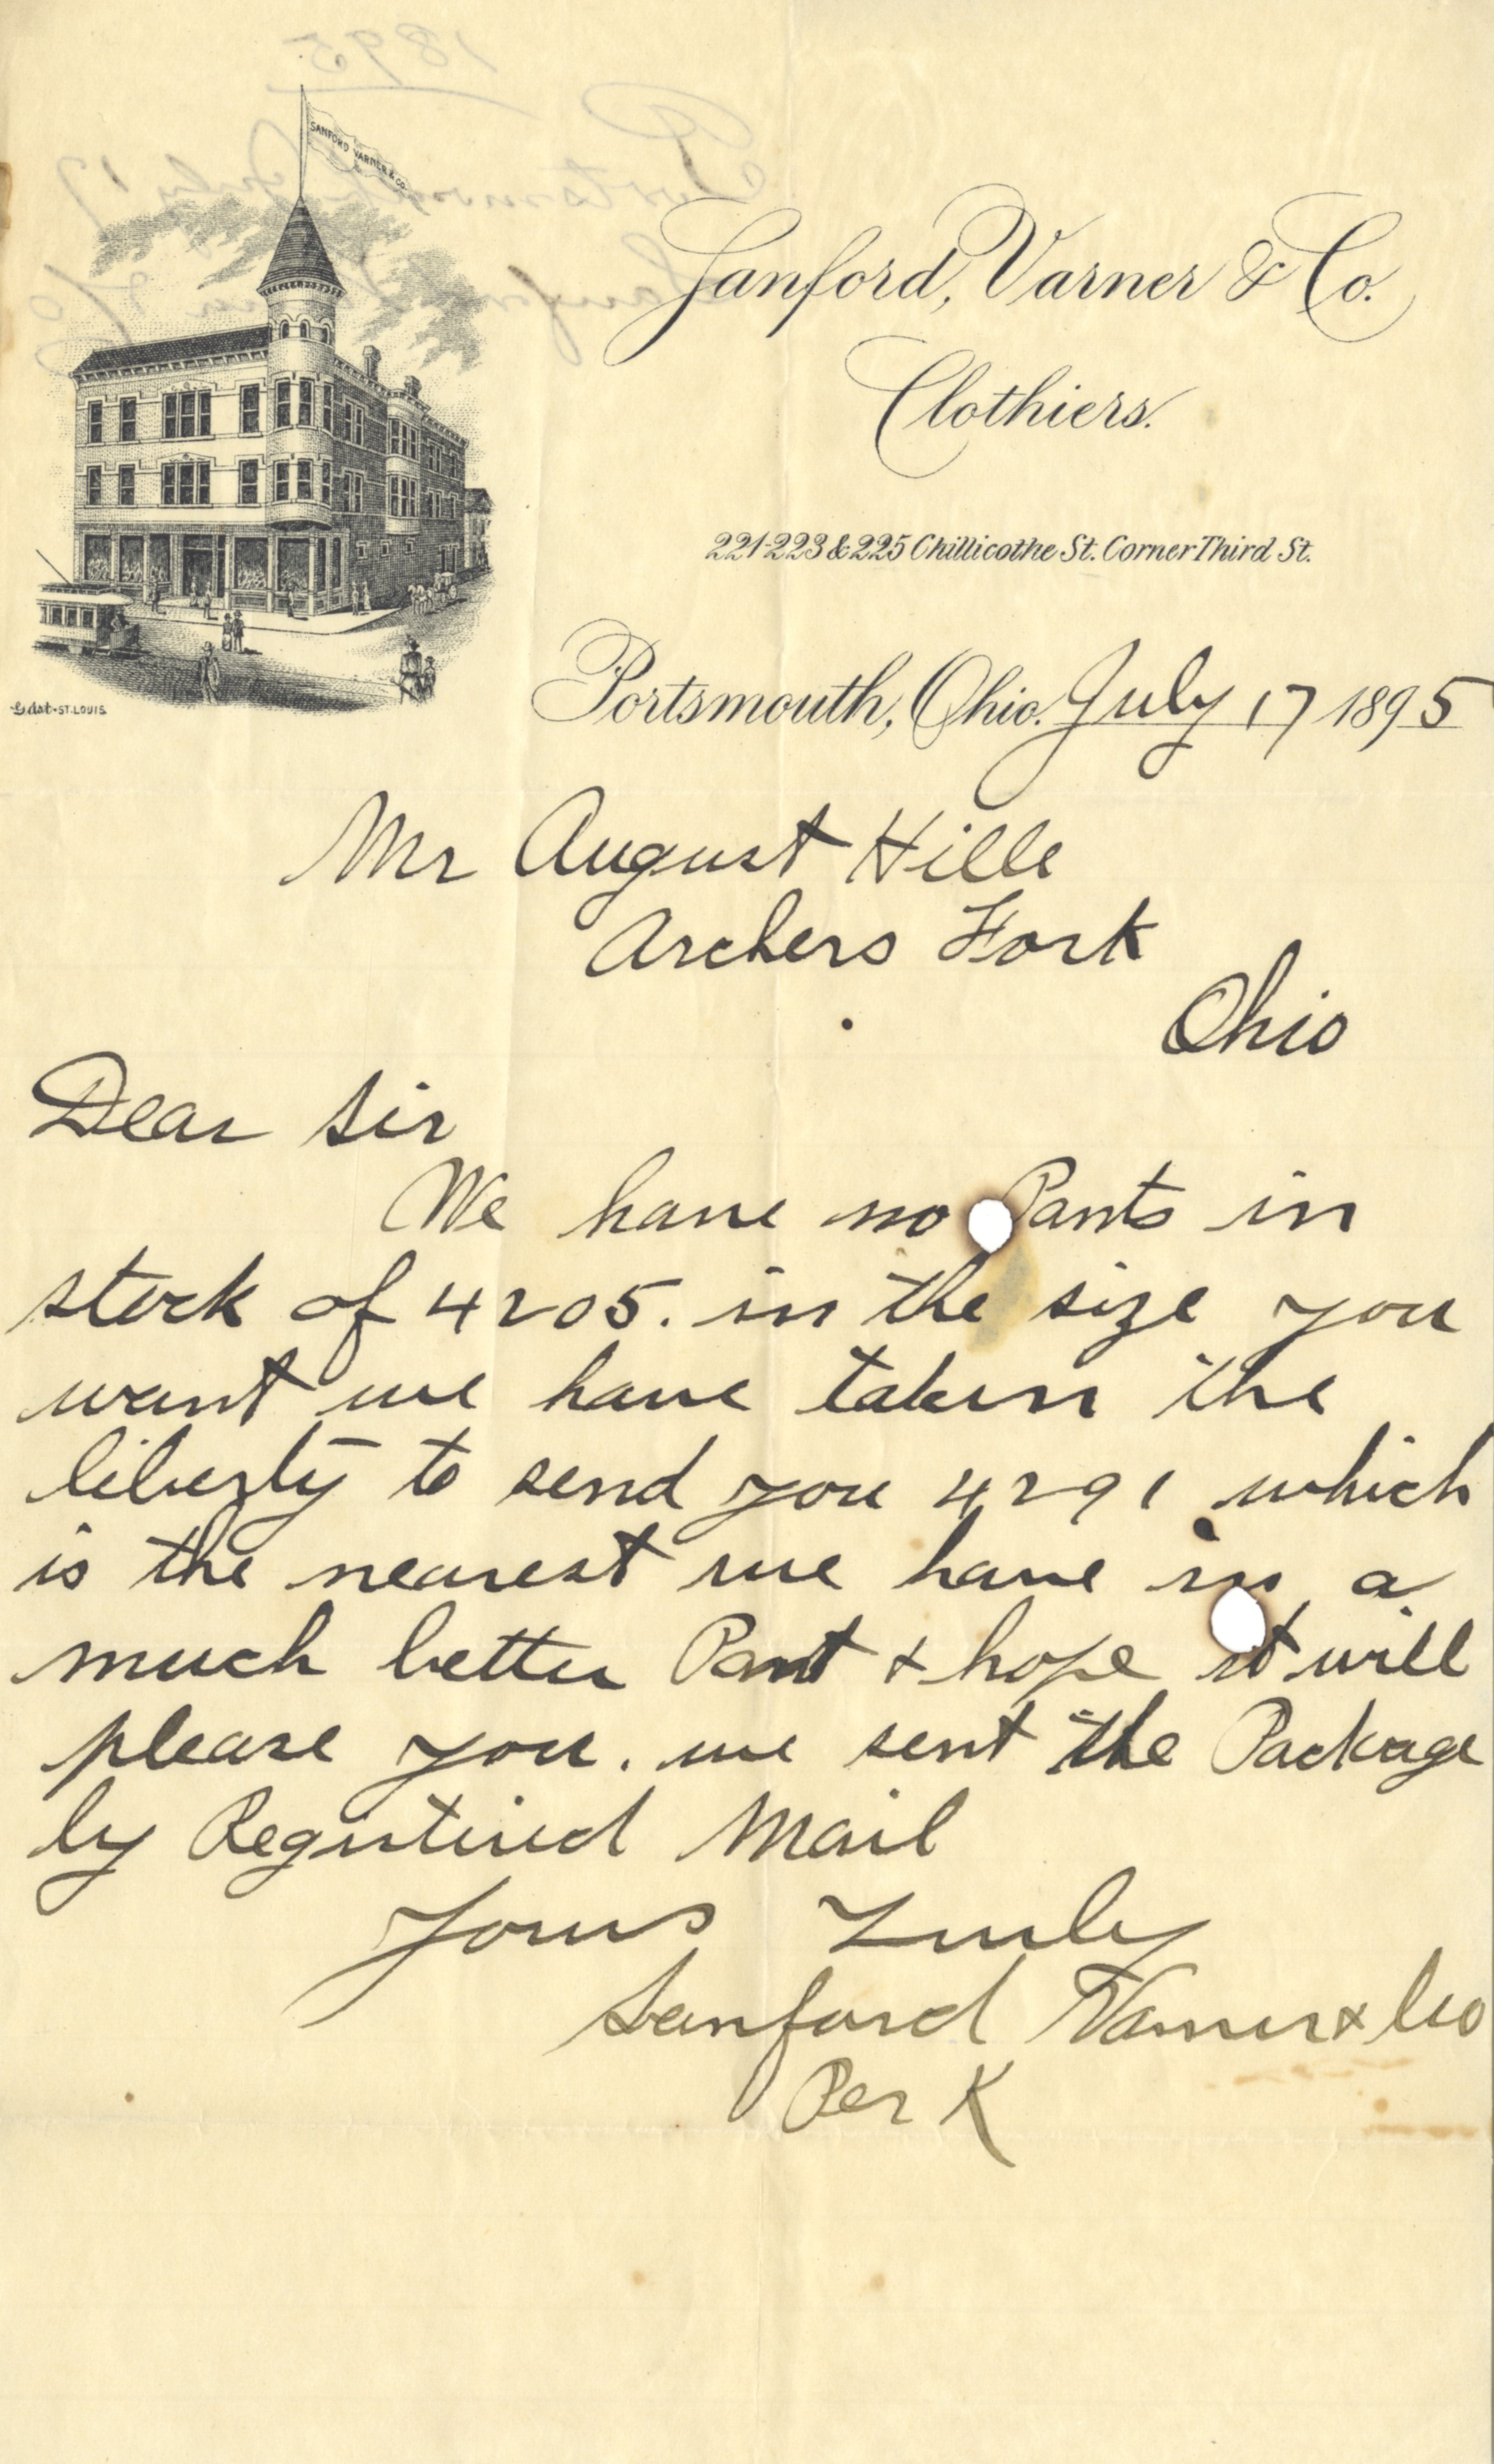 SANFORD VARNER & CO.
Sanford, Varner & Co.
Clothiers.
221-223 & 225 Chillicothe St. Corner Third St.
ST. LOUIS
Portsmouth, Ohio. July 17 1895
Mr August Hille
Archers Fork
Ohio
Dear Sir
We have no Pants in
stock of 4205. in the size you
want we have taken the
liberty to send you 4291 which
is the nearest we have in a
much better Pant & hope it will
please you. we sent the Package
by Registired Mail
Yours Truly
Sanford Varner & Co
Per K
1895
Portsmouth July 17